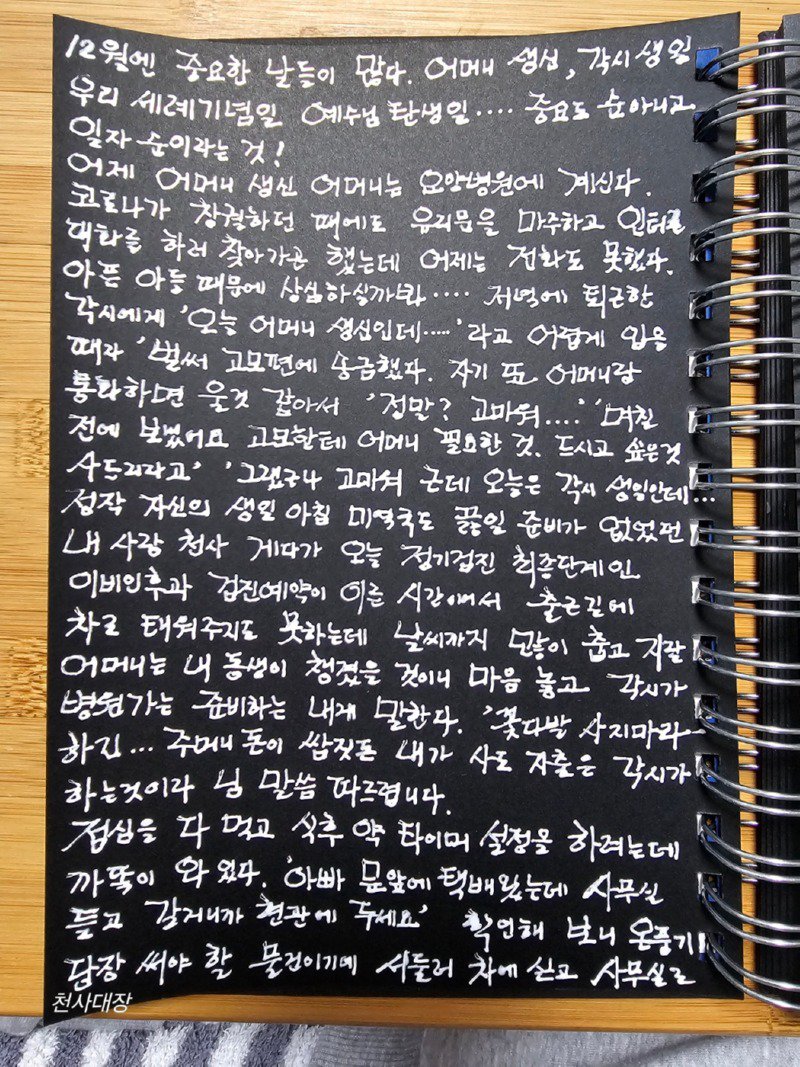 12월엔 중요한 날들이 많다. 어머니 생신, 각시 생일
우리 세례기념일 예수님 탄생일.... 중요도 순 아니고
일자 순이라는 것!
어제 어머니 생신 어머니는 요양병원에 계신다.
코로나가 창궐하던 때에도 유리문을 마주하고 인터폰
대화를 하러 찾아가곤 했는데 어제는 전화도 못했다.
아픈 아들 때문에 상심하실까봐.... 저녁에 퇴근한
각시에게 '오늘 어머니 생신인데.....' 라고 어렵게 입을
떼자 '벌써 고모편에 송금했다. 자기 또 어머니랑
통화하면 울것 같아서 '정말? 고마워....' '며칠
전에 보냈어요 고모한테 어머니 필요한 것. 드시고 싶은것
사드리라고' '그랬구나 고마워 근데 오늘은 각시 생일인데...
정작 자신의 생일 아침 미역국도 끓일 준비가 없었던
내 사랑 천사 게다가 오늘 정기검진 최종단계인
이비인후과 검진예약이 이른 시간이어서 출근길에
차로 태워주지도 못하는데 날씨까지 많이 춥고 지랄
어머니는 내 동생이 챙겼을 것이니 마음 놓고 각시가
병원가는 준비하는 내게 말한다. '꽃다발 사지마라~
하긴... 주머니 돈이 쌈짓돈 내가 사도 지출은 각시가
하는것이라 님 말씀 따르렵니다.
점심을 다 먹고 식후 약 타이머 설정을 하려는데
까똑이 와 있다. '아빠 문앞에 택배왔는데 사무실
들고 갈거니까 현관에 두세요' 확인해 보니 온풍기!
당장 써야 할 물건이기에 서둘러 차에 싣고 사무실로
천사대장